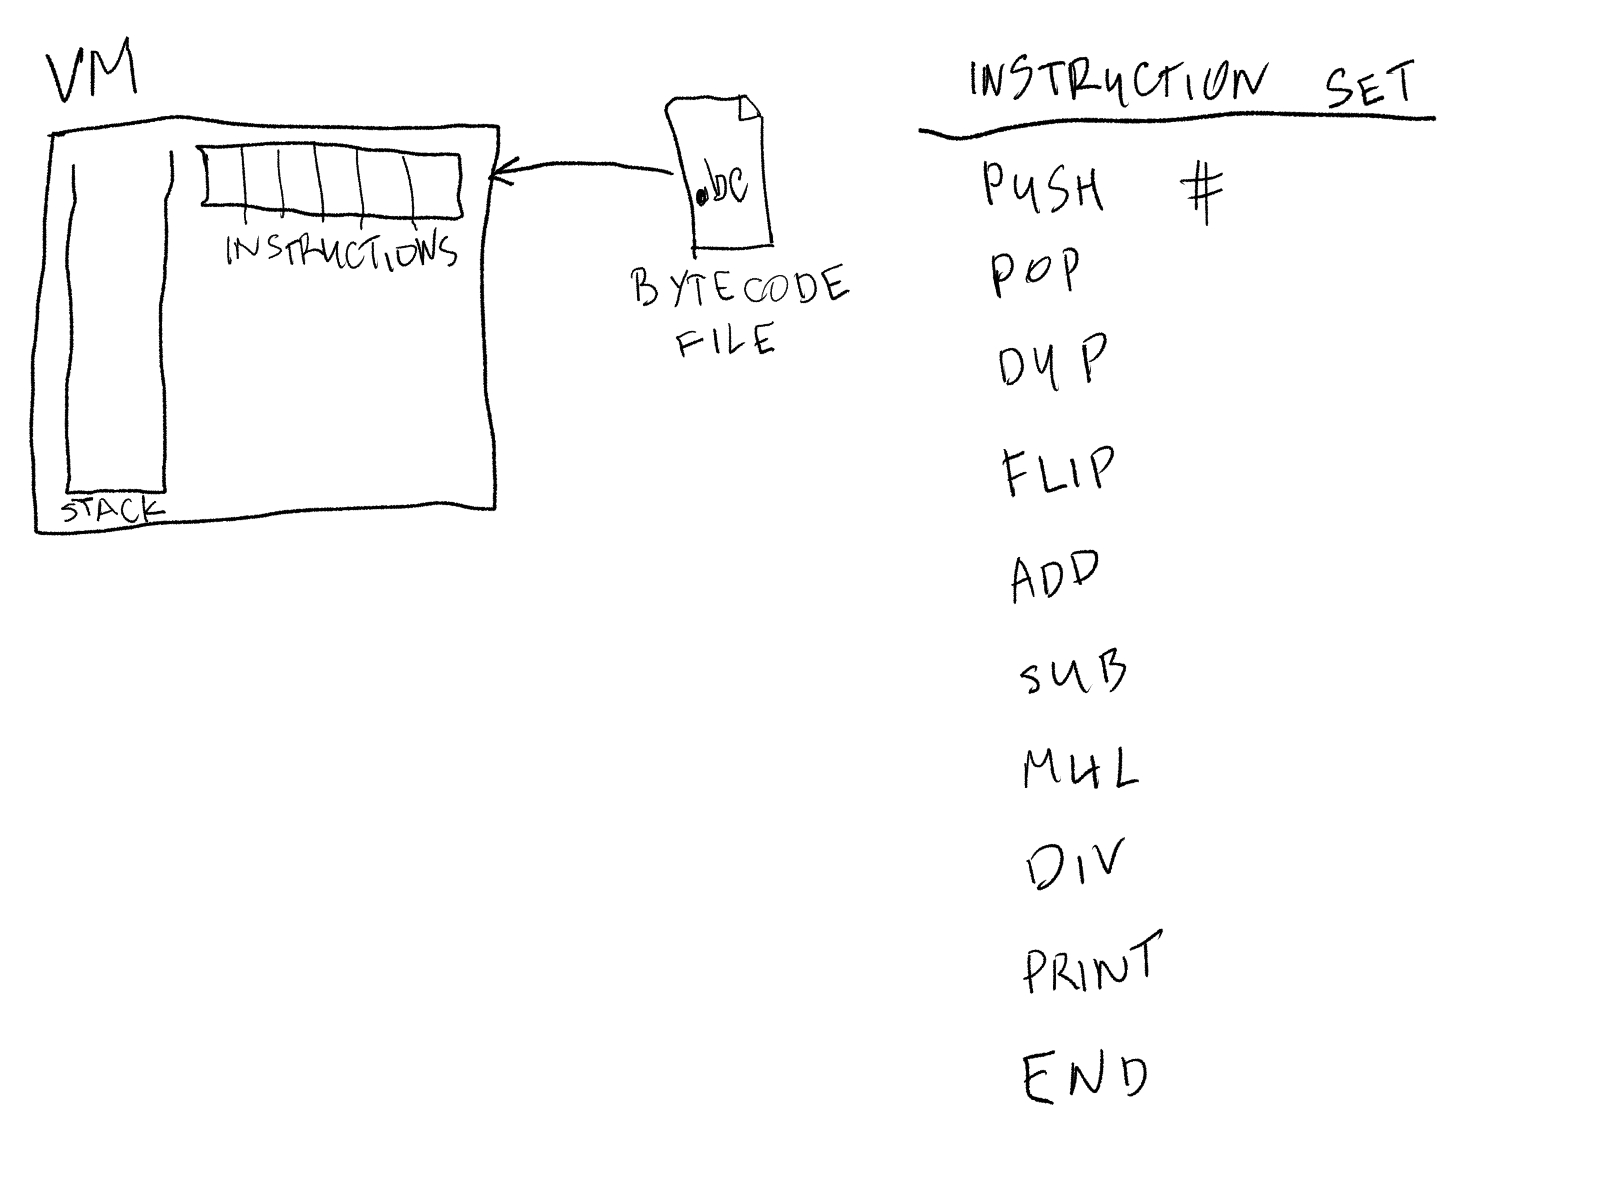 VM
INSTRUCTIONS
STACK
.bc
BYTECODE
FILE
INSTRUCTION SET
PUSH #
POP
DUP
FLIP
ADD
SUB
MUL
DIV
PRINT
END